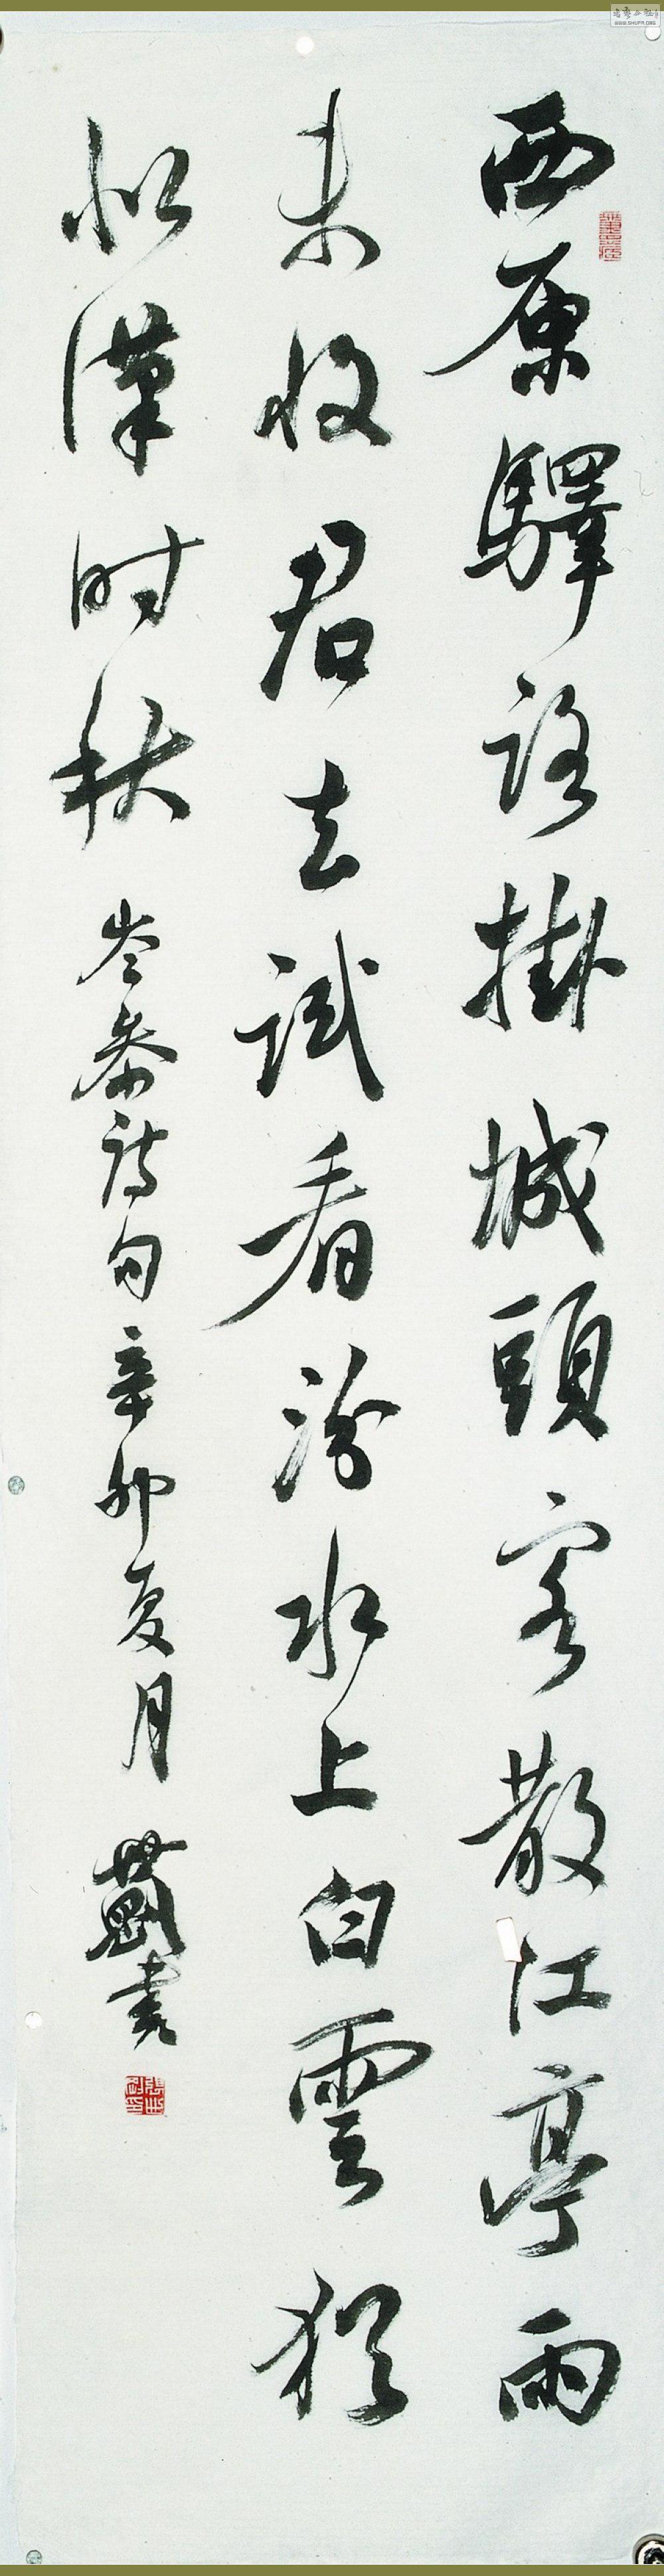 西原驛路掛城頭客散江亭雨
未收君去試看汾水上白雲猶
似漢时秋
岑參詩句辛卯夏月世劻書
WWW.SHUFA.ORG